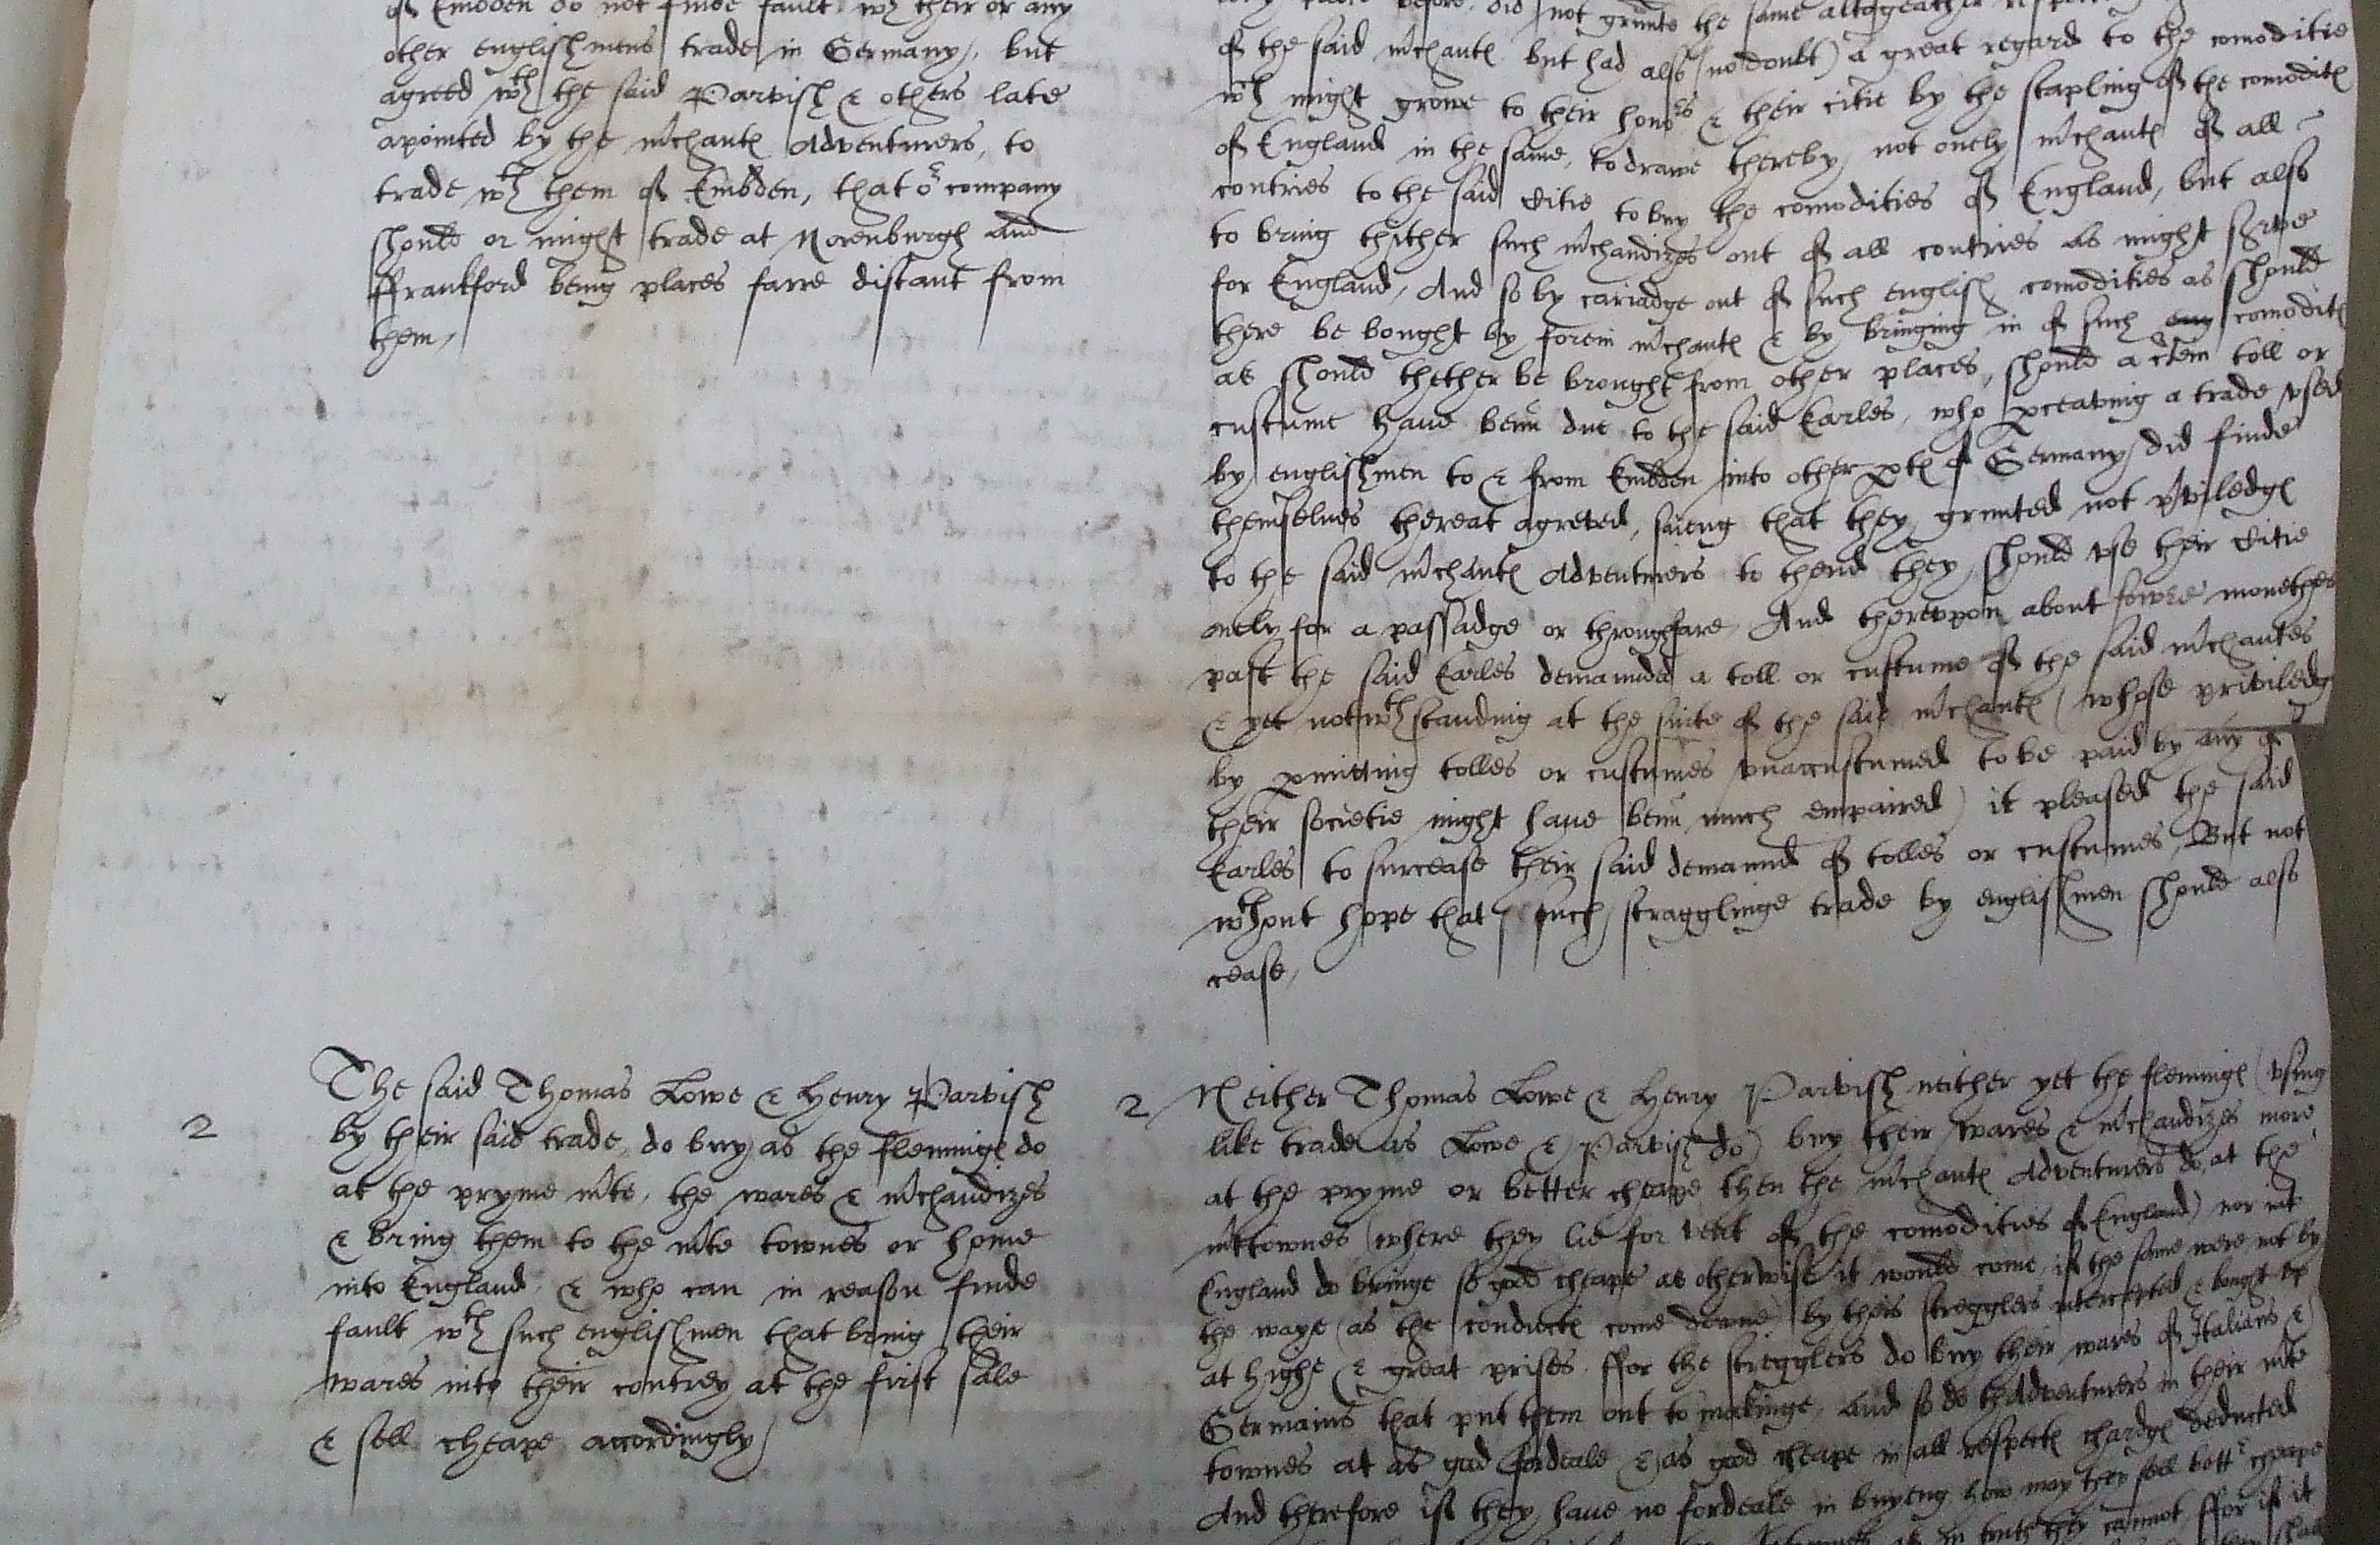 of Embden do not finde fault wth their or any
other englishmens trade in Germany, but
agreed wth the said Parvish & others late
apointed by the mchantes Adventurers, to
trade wth them of Embden, that or company
should or might trade at Norenburgh and
ffrankford being places farre distant from
them,
2
The said Thomas Lowe & Henry Parvish
by their said trade, do buy as the fleminges do
at the pryme mte, the wares & mchandizes
& bring them to the mte townes or home
into England, & who can in reason finde
fault wth such englishmen that bring their
wares into their contrey at the first sale
& sell cheape accordingly,
before, did not graunte the same altogeather
of the said mchantes but had also (no doubt) a great regard to the comoditie
wch might growe to their honors & their citie by the stapling of the comodities
of England in the same, to drawe thereby not onely mchantes of all
contries to the said Citie to buy the comodities of England, but also
to bring thither such mchandizes out of all contries as might serve
for England, And so by cariadge out of such english comodities as should
there be bought by forein mchantes & by bringing in of such comodities
as should thether be brought from other places, should a ctein toll or
custume have benn due to the said Earles, who pceaving a trade vsed
by englishmen to & from Embden into other ptes of Germany, did finde
themselves thereat agreved, saieng that they graunted not pviledges
to the said mchantes Adventurers to thend they should vse their Citie
onely for a passadge or throughfare, And therevpon about fowre monethes
past the said Earles demaunded a toll or custume of the said mchantes
& yet notwthstanding at the suite of the said mchantes (whose priviledg
by pmitting tolles or custumes vnaccustumed to be paid by any of
their societie might have benn much empaired) it pleased the said
Earles to surcease their said demaund of tolles or custumes, But not
wthout hope that such stragglinge trade by englishmen should also
cease,
2 Neither Thomas Lowe & Henry Parvish neither yet the fleminges (vsing
like trade as Lowe & Parvish do) buy their wares & mchandizes more
at the pryme or better cheape then the mchantes Adventurers do, at the
mttownes (where they lie for vent of the comodities of England) nor into
England do bringe so good cheape as otherwise it would come, if the same were not by
the waye (as the conductes come downe) by theis stregglers intercepted & bought vp
at highe & great prises, ffor the stregglers do buy their wares of Italians &
Germains that put them out to makinge, and so do thAdventurers in their mte
townes at as good fordeale & as good cheape in all respectes chardges deducted
And therefore if they have no fordeale in buyeng how may they sell bettr cheape
in truth they cannot, ffor if it